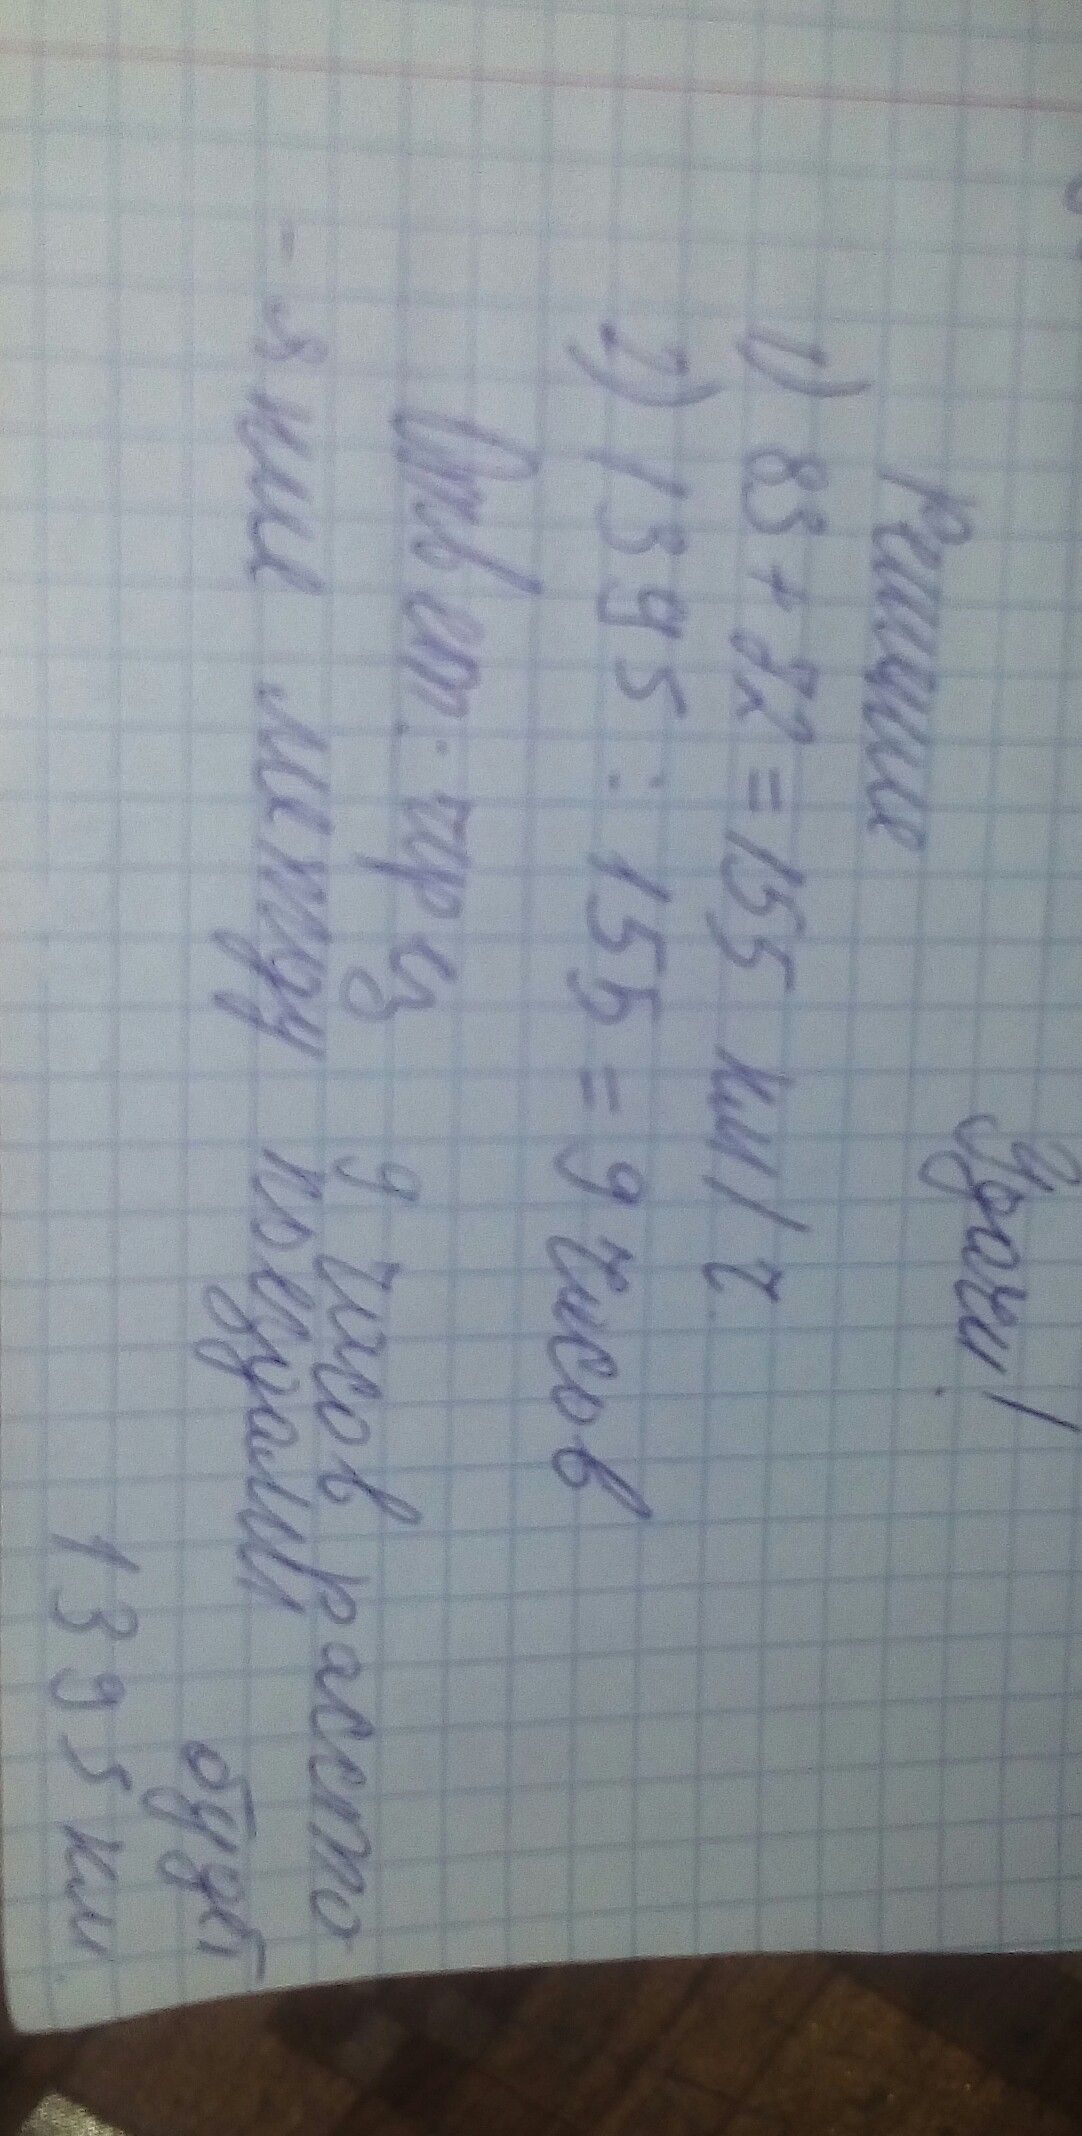 Удачи!
Решение
1) 83 + 72 = 155 км/ч.
2) 1395 : 155 = 9 часов
Ответ: через 9 часов расстоя
- яние между поездами будет
1395 км